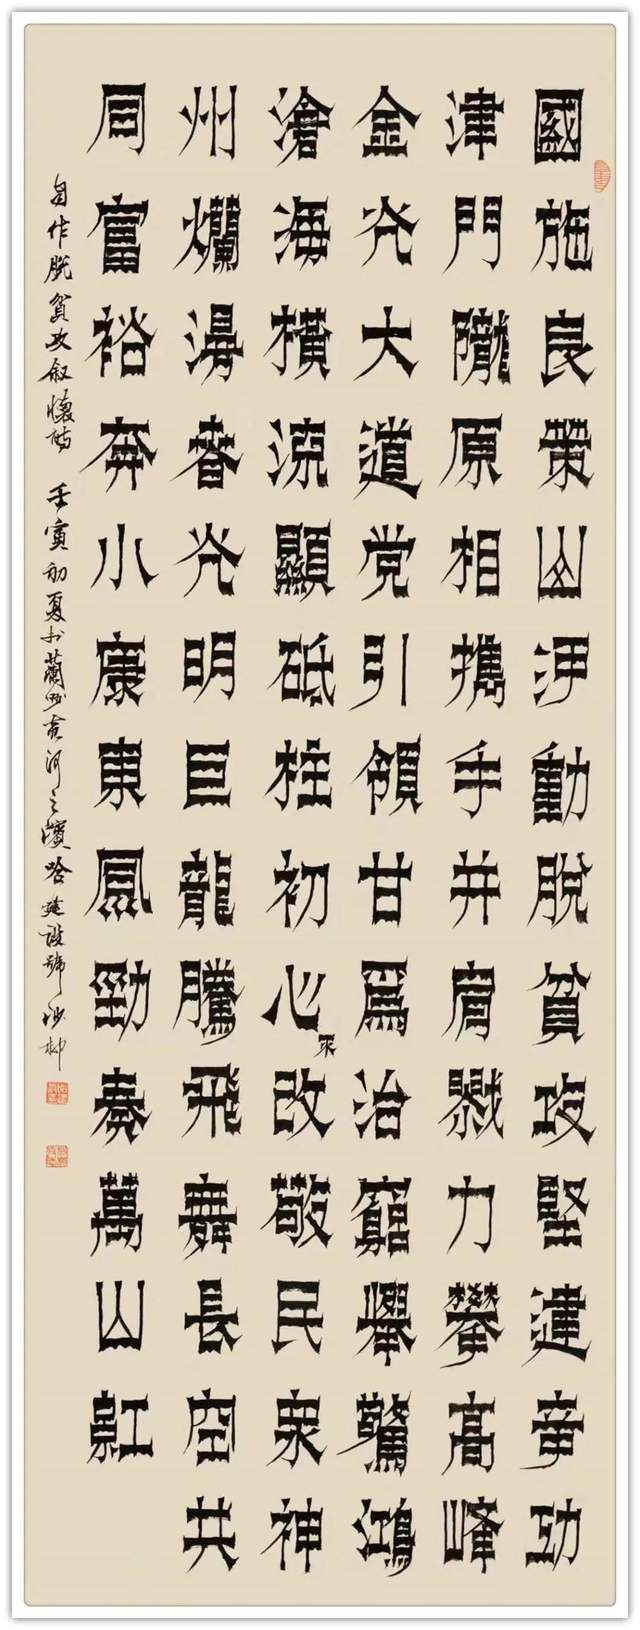 國施良策山河動脫貧攻堅建竒功
津門隴原相攜手并肩戮力攀高峰
金光大道党引領甘爲治窮舉驚鴻
滄海橫流顯砥柱初心改敬民衆神
州爛漫春光明巨龍騰飛舞長空共
同富裕奔小康東風勁奏萬山紅
自作脫貧攻叙懷詩 壬寅初夏於蘭州黃河之濱哈建設號沙柳